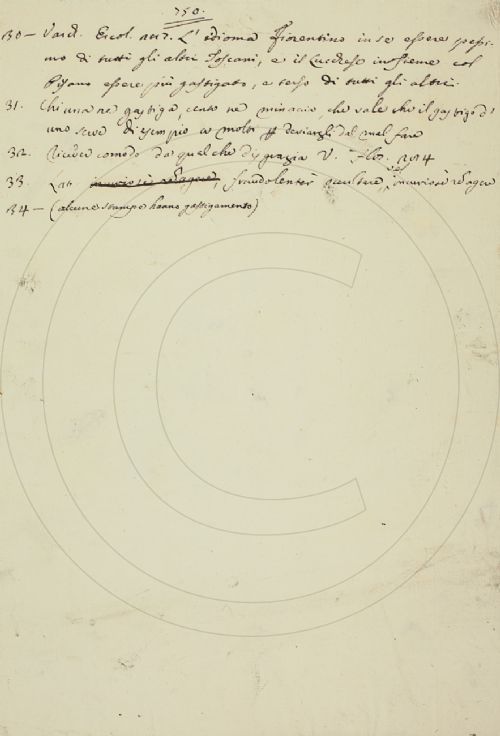 750.
30 - Varch. Ercol. L' idioma Fiorentino in se essere pessi-
mo di tutti gli altri Toscani, e il Lucchese insieme col
Pisano essere più gastigato, e terso di tutti gli altri.
31. Chi una ne gastiga, cento ne minaccia, che vale che il gastigo d'
uno serve d'esempio a molti deviargli dal mal fare
32. da qualche disgrazia V. Flos. 294
33. Lat. fraudolenter
34 - (alcune stampe hanno gastigamento)